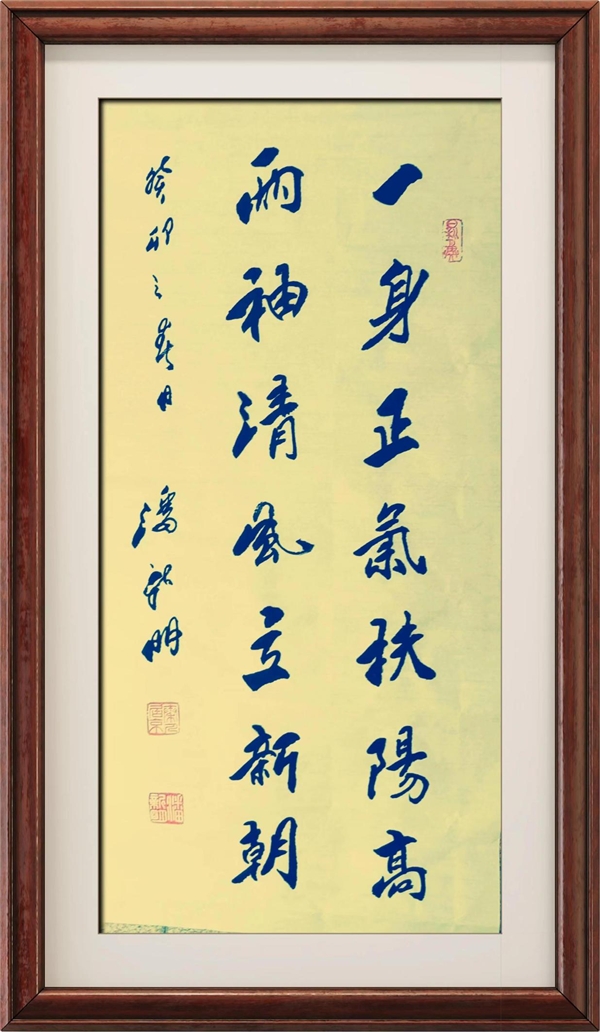 一身正氣秩陽高
兩袖清風立新朝
癸卯之春月
潘新明